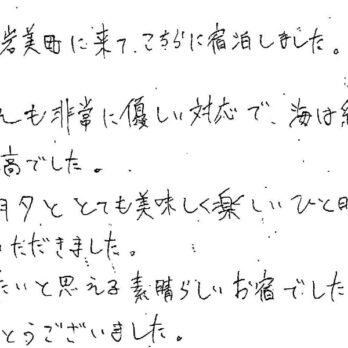 岩美町に来て、こちらに宿泊しました。
んも非常に優しい対応で、海は
高でした。
夕ととても美味しく楽しいひと
ただきました。
たいと思える素晴らしいお宿でした
とうございました。